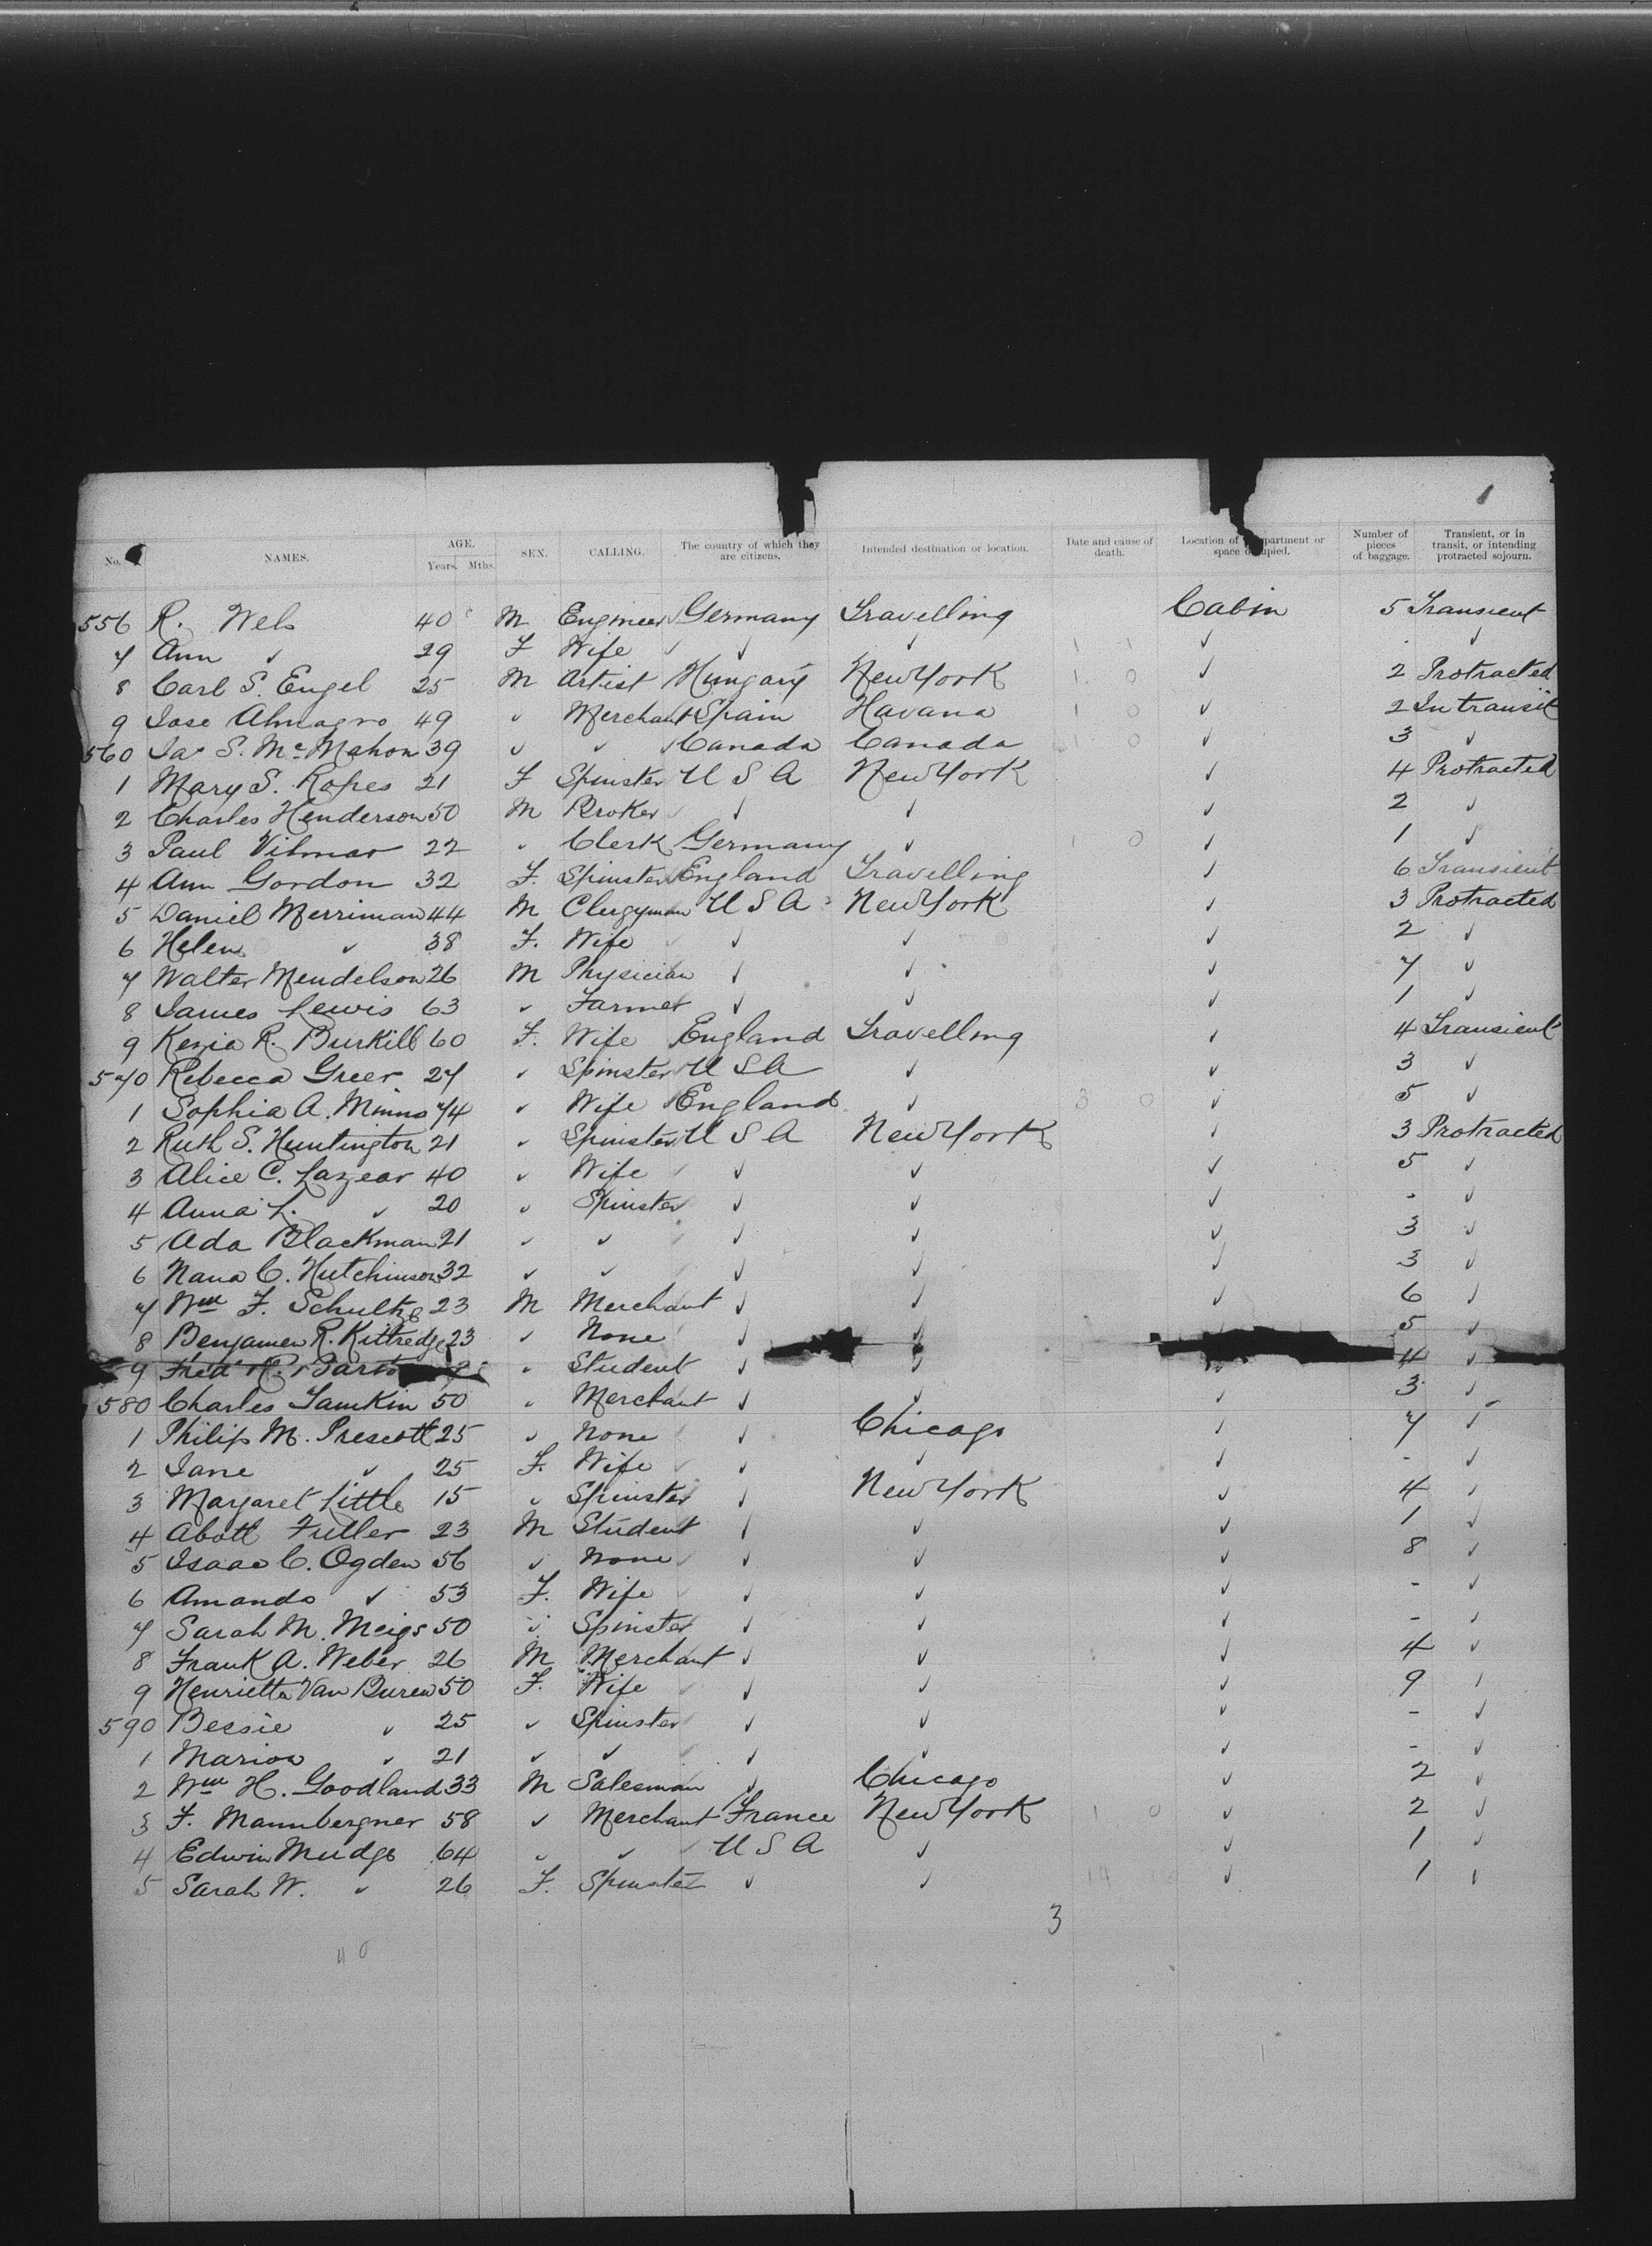 1
No. NAMES. AGE. Years. Mths. SEX. CALLING. The country of which they are citizens. Intended destination or location. Date and cause of death. Location of partment or space occupied. Number of pieces of baggage. Transient, or in transit, or intending protracted sojourn.
556 R. Wels 40 M Engineer Germany Travelling Cabin 5 Transient
7 Ann ✓ 29 F Wife ✓ ✓ ✓ ✓ - ✓
8 Carl S. Engel 25 M Artist Hungary New York ✓ 2 Protracted
9 Jose Almagro 49 ✓ Merchant Spain Havana ✓ 2 In transit
560 Jas S. McMahon 39 ✓ ✓ Canada Canada ✓ 3 ✓
1 Mary S. Ropes 21 F Spinster U S A New York ✓ 4 Protracted
2 Charles Henderson 50 M Broker ✓ ✓ ✓ 2 ✓
3 Paul Vilmar 22 ✓ Clerk Germany ✓ ✓ 1 ✓
4 Ann Gordon 32 F. Spinster England Travelling ✓ 6 Transient
5 Daniel Merriman 44 M Clergyman U S A New York ✓ 3 Protracted
6 Helen ✓ 38 F. Wife ✓ ✓ ✓ 2 ✓
7 Walter Mendelson 26 M Physician ✓ ✓ ✓ 7 ✓
8 James Lewis 63 ✓ Farmer ✓ ✓ ✓ 1 ✓
9 Kezia R. Burkill 60 F. Wife England Travelling ✓ 4 Transient
570 Rebecca Greer 27 ✓ Spinster U S A ✓ ✓ 3 ✓
1 Sophia A. Minns 74 ✓ Wife England ✓ 3 0 ✓ 5 ✓
2 Ruth S. Huntington 21 ✓ Spinster U S A New York ✓ 3 Protracted
3 Alice C. Lazear 40 ✓ Wife ✓ ✓ ✓ 5 ✓
4 Anna L. ✓ 20 ✓ Spinster ✓ ✓ ✓ - ✓
5 Ada Blackman 21 ✓ ✓ ✓ ✓ ✓ 3 ✓
6 Nana C. Hutchinson 32 ✓ ✓ ✓ ✓ ✓ 3 ✓
7 Wm F. Schultze 23 M Merchant ✓ ✓ ✓ 6 ✓
8 Benjamen R. Kittredge 23 ✓ None ✓ ✓ 5 ✓
9 Fred R. ✓ Student ✓ ✓ 4 ✓
580 Charles Lamkin 50 ✓ Merchant ✓ ✓ ✓ 3 ✓
1 Philip M. Prescott 25 ✓ None ✓ Chicago ✓ 7 ✓
2 Jane ✓ 25 F. Wife ✓ ✓ ✓ - ✓
3 Margaret Little 15 ✓ Spinster ✓ New York ✓ 4 ✓
4 Abott Fuller 23 M Student ✓ ✓ ✓ 1 ✓
5 Isaac C. Ogden 56 ✓ None ✓ ✓ ✓ 8 ✓
6 Amanda ✓ 53 F. Wife ✓ ✓ ✓ - ✓
7 Sarah M. Meigs 50 ✓ Spinster ✓ ✓ ✓ - ✓
8 Frank A. Weber 26 M Merchant ✓ ✓ ✓ 4 ✓
9 Henrietta Van Buren 50 F. Wife ✓ ✓ ✓ 9 ✓
590 Bessie ✓ 25 ✓ Spinster ✓ ✓ ✓ - ✓
1 Marion ✓ 21 ✓ ✓ ✓ ✓ ✓ - ✓
2 Wm H. Goodland 33 M Salesman ✓ Chicago ✓ 2 ✓
3 F. Mannbergner 58 ✓ Merchant France New York 1 0 ✓ 2 ✓
4 Edwin Mudge 64 ✓ ✓ U S A ✓ ✓ 1 ✓
5 Sarah W. ✓ 26 F. Spinster ✓ ✓ 14 ✓ 1 ✓
3